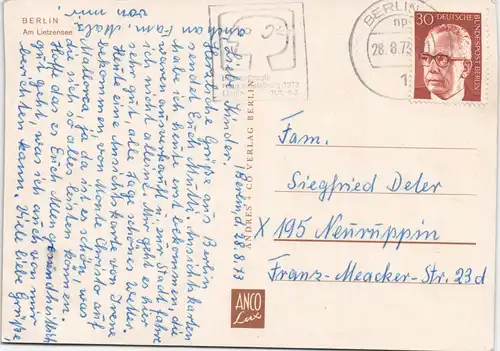 BERLIN
Am Lietzensee
Berlin, d. 28.8.73
Liebe Kinder.
Herzliche Grüße aus Berlin
sendet Euch Mutti. Ansichtskarten
habe ich heute mit bekommen, die
waren ausverkauft. In zur Stadt fahre
ich nicht alleine. Mir geht es hier
sehr gut, alle Tage schönes Wetter.
Heute eine Ansichtskarte von Irene
bekommen, von Monte Christo auf
Mallorca, ja da ist es schön, was
die sich so alles leisten können.
Hoffe das es Euch Men gesundheitlich
gut geht, was ich auch von mir
berichten kann. Viele liebe Grüße
an Fam. Malz
von mir.
ANDRES + CO VERLAG BERLIN
ANCO
Lux
BERLIN
28.8.73
30
DEUTSCHE
BUNDESPOST BERLIN
Fam.
Siegfried Deter
X 195 Neuruppin
Franz-Meacker-Str. 23d